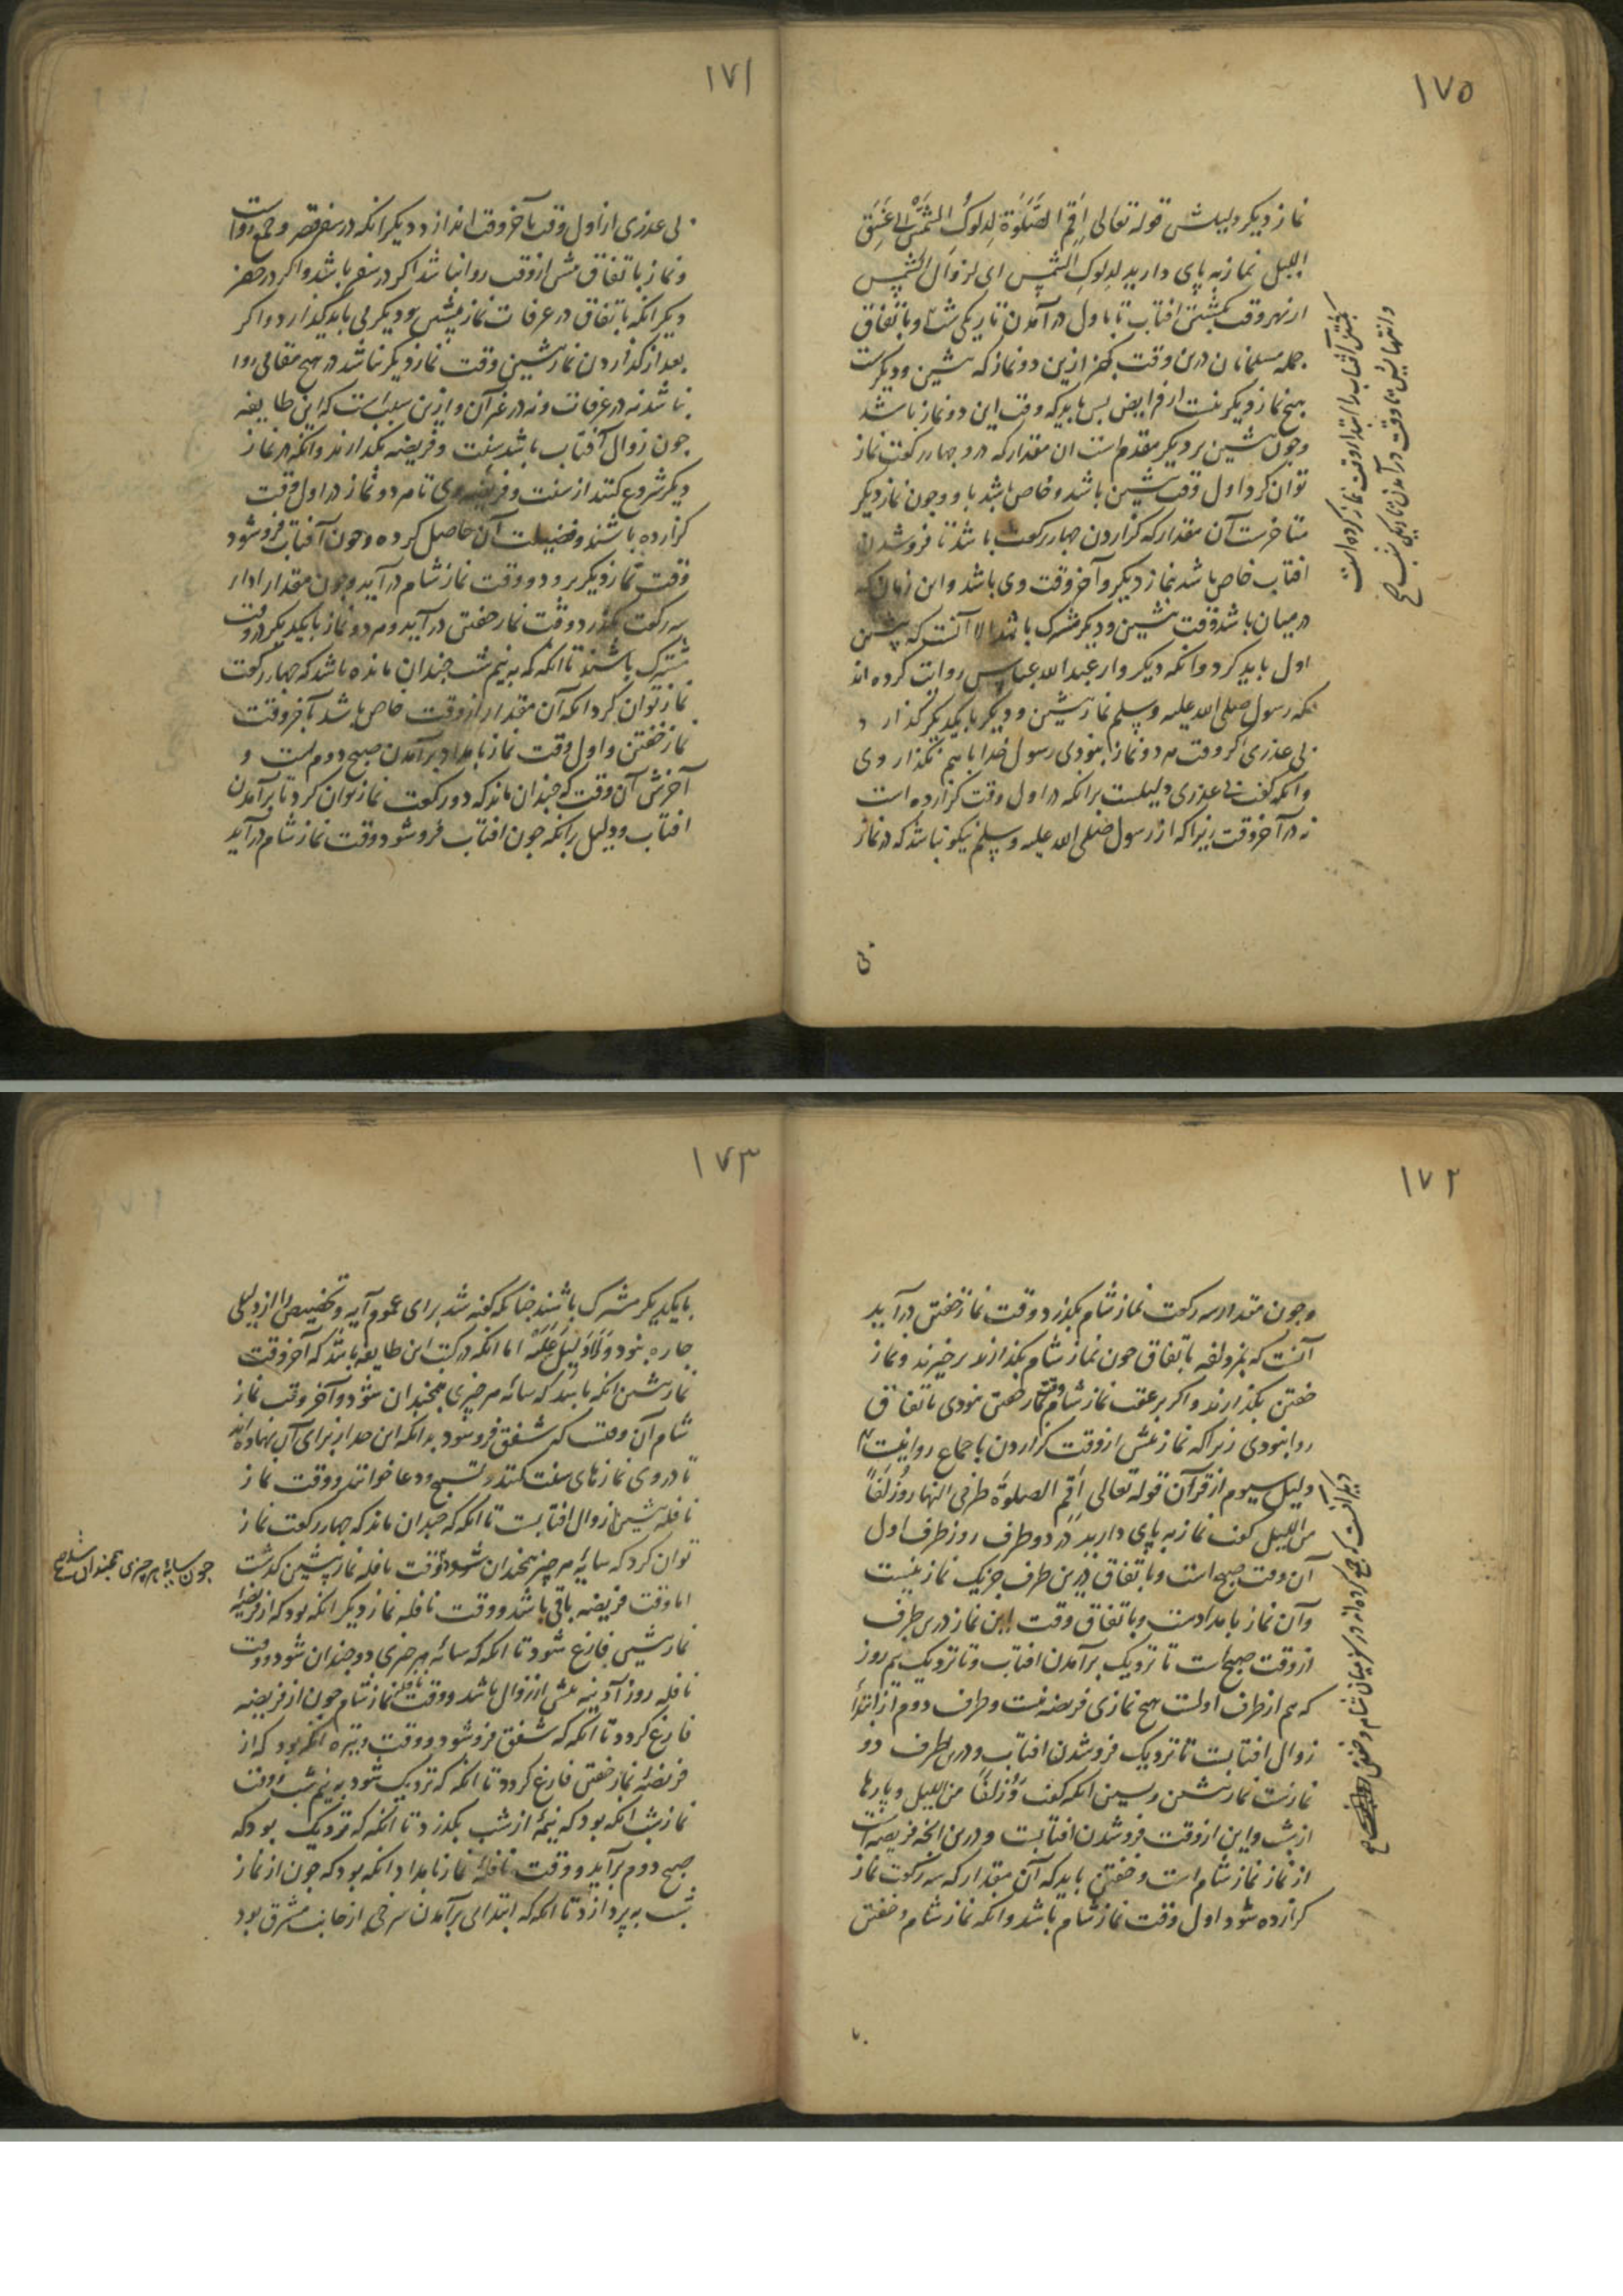 ١٧٥
نماز دیکر دلیلش قوله تعالی اَقِمِ الصَّلَوٰةَ لِدلوکِ الشَّمْسِ اِلی غَسَقِ
اللیل نماز به پای دارید لدلوکِ الشمس ای لزوال الشمس
از نهر وقت بکشتن افتاب تا باول در آمدن تاریکی شب و باتفاق
جمله مسلمانان درین وقت بجز ازین دو نماز که پیشین و دیکرست
هیچ نماز دیکر نیست از فرایض بس باید که وقت این دو نماز باشد
وجون پیشین بر دیکر مقدم است ان مقدار که درو چهار رکعت نماز
توان کرد اول وقت پیشین باشد و خاص باشد باو وجون نماز دیکر
متاخرست آن مقدار که کزاردن چهار رکعت باشد تا فروشدن
افتاب خاص باشد بنماز دیکر و آخر وقت وی باشد و این زمان که
درمیان باشد وقت پیشین و دیکر مشترک باشد الا آنست که پیشین
اول باید کرد وانکه دیکر واز عبدالله عباس روایت کرده اند
که رسول صلی الله علیه وسلم نماز پیشین و دیکر بایکدیکر کذارد
بی عذری اکر وقت هر دو نماز نبودی رسول خدا باهم نکذاردی
وانکه کفت بی عذری دلیلست برانکه در اول وقت کزارده است
نه در آخر وقت زیرا که از رسول صلی الله علیه وسلم نیکو نباشد که در نماز
بی
بکشتن آفتاب را ابتدار وقت نماز کرده است
وانتهایش تا وقت در آمدن تاریکی شب صح
١٧١
بی عذری از اول وقت بآخر وقت اندازد دیکر انکه در سفر قصر و جمع رواست
ونماز باتفاق پیش از وقت روا نباشد اکر در سفر باشد واکر در حضر
دیکر انکه باتفاق در عرفات نماز پیشین و دیکر می باید کذارد واکر
بعد از کذاردن نماز پیشین وقت نماز دیکر نباشد در هیچ مقامی روا
نباشد نه در عرفات ونه در غیر آن وازین سبب است که این طایفه
جون زوال آفتاب باشد سنت و فریضه بکذارند وانکه در نماز
دیکر شروع کنند از سنت و فریضه وی تا هر دو نماز در اول وقت
کزارده باشند و فضیلت آن حاصل کرده وجون آفتاب فروشود
وقت نماز دیکر برود ووقت نماز شام در آید وجون مقدار ادار
سه رکعت بکذرد وقت نماز خفتن در آید وهر دو نماز بایکدیکر در وقت
مشترک باشند تا انکه که به نیم شب چندان مانده باشد که چهار رکعت
نماز توان کرد انکه آن مقدار از وقت خاص باشد بآخر وقت
نماز خفتن واول وقت نماز بامداد برآمدن صبح دوم است و
آخرش آن وقت که چندان ماند که دو رکعت نماز توان کرد تا برآمدن
افتاب ودلیل برانکه جون افتاب فروشود وقت نماز شام درآید
١٧٢
وجون مقدار سه رکعت نماز شام بکذرد وقت نماز خفتن درآید
آنست که بمزدلفه باتفاق جون نماز شام بکذارند برخیزند ونماز
خفتن بکذارند واکر بر عقب نماز شام وقت نماز خفتن نبودی باتفاق
روا نبودی زیرا که نماز پیش از وقت کزاردن باجماع روا نیست
دلیل سیوم از قرآن قوله تعالی اَقِمِ الصلوةَ طرفی النهار وَزُلَفًا
من اللیل کفت نماز به پای دارید در دو طرف روز طرف اول
آن وقت صبح است وباتفاق درین طرف جز یک نماز نیست
وآن نماز بامدادست وباتفاق وقت این نماز درین طرف
از وقت صبح است تا نزدیک برآمدن افتاب وتا نزدیک نیم روز
که هم از طرف اولست هیچ نمازی فریضه نیست وطرف دوم از ابتدا
زوال افتابست تا نزدیک فروشدن افتاب ودرین طرف دو
نمازست نماز پیشین وپسین انکه کفت وَزُلَفًا من اللیل وپارها
از شب واین از وقت فروشدن افتابست ودرین انچه فریضه است
از نماز نماز شام است وخفتن باید که آن مقدار که سه رکعت نماز
کزارده شود اول وقت نماز شام باشد وانکه نماز شام وخفتن
دیکر آنست که جمع کرده اند در سفر میان شام وخفتن
١٧٣
بایکدیکر مشترک باشند چنانکه کفته شد برای عموم آیه وتخصیص را از دلیلی
چاره نبود وَلَا دَلِیْلَ عَلَیْهِ اما انکه در کتب این طایفه باشد که آخر وقت
نماز پیشین انکه باشد که سایه هر چیزی همچندان شود وآخر وقت نماز
شام آن وقت که شفق فروشود بدانکه این حد از برای آن نهاده اند
تا در وی نمازهای سنت کنند وتسبیح ودعا خوانند ووقت نماز
نافله پیشین از زوال افتابست تا انکه که چندان ماند که چهار رکعت نماز
توان کرد که سایه هر چیز همچندان شود ووقت نافله نماز پیشین کذشت
اما وقت فریضه باقی باشد ووقت نافله نماز دیکر انکه بود که از فریضه
نماز پیشین فارغ شود تا انکه که سایه هر چیزی دو چندان شود ووقت
نافله روز آدینه پیش از زوال باشد ووقت نافله نماز شام جون از فریضه
فارغ کردد تا انکه که شفق فروشود ووقت وتیره انکه بود که از
فریضه نماز خفتن فارغ کردد تا انکه که نزدیک شود به نیم شب ووقت
نماز شب انکه بود که نیمهٔ از شب بکذرد تا انکه که نزدیک بود که
صبح دوم برآید ووقت نافله نماز بامداد انکه بود که جون از نماز
شب به پردازد تا انکه که ابتدای برآمدن سرخی از جانب مشرق بود
جون سایهٔ هر چیزی همچندان شد صح